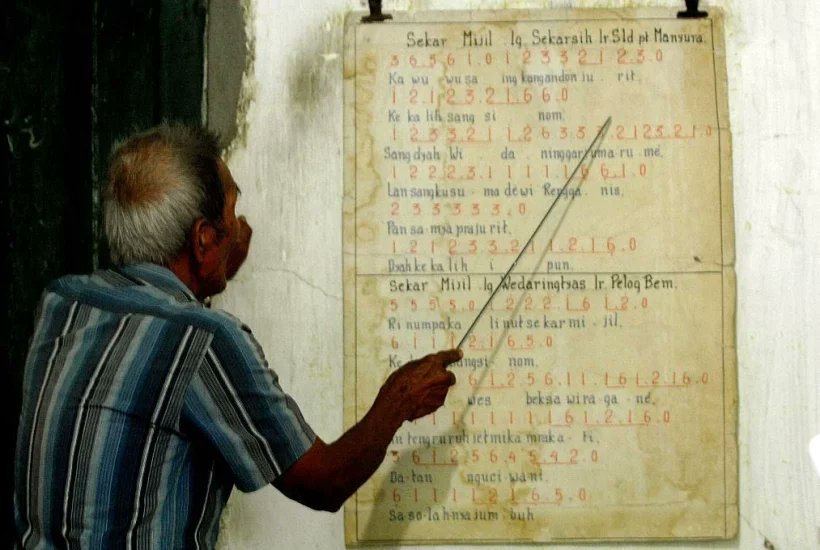 Sekar Mijil .lg Sekarsih lr Sld pt Manyura.
3 6 5 6 1.0 1 2 3 3 2 1 2 3.0
Ka wu wu sa ing kangandon ju . rit.
1 2 1 2 3.2 1.6 6.0
Ke ka lih sang si nom.
1 2 3 3 2 1 1 2 6 3 3 3.2 1 2 3.2 1.0
Sang dyah Wi da ninggar ma ru me.
1 2 2 2 3.1 1 1 1.1.6 6 1.0
Lan sang kusu . ma dewi Rengga . nis.
2 3 3 3 3 3.0
Pan sa mya praju rit.
1 2 1 2 3 3 2 1 1.2 1 6.0
Dyah ke ka lih i pun.
Sekar Mijil .lg Wedaringtyas lr Pelog Bem.
5 5 5 5.0 1 2 2 2 1 6 1 2.0
Ri numpaka li nut se kar mi . jil.
6 1 1 1 2.1 6.5.0
Ke angsi nom.
6 1.2 5 6.1 1.1 6 1.2.1 6.0
wes beksa wi ra ga . ne.
1 1 1 1 1 1 6 1.2.1 6.0
tengruruh jetmika mraka . ti.
5 6 1 2 5 6.4 5.4 2.0
Da-tan nguci wa ni.
6 1 1 1 1 2 1 6.5.0
Sa so lah-nya jum buh